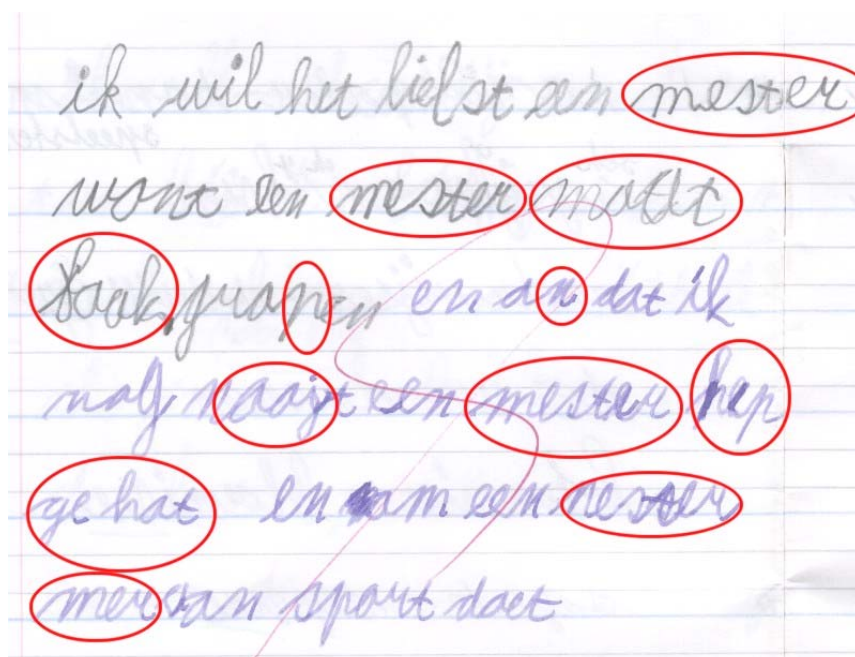 ik wil het liefst een mester
want een mester maakt
vaak grapen en an dat ik
nog naajt een mester hep
ge hat en am een mester
mer aan sport doet